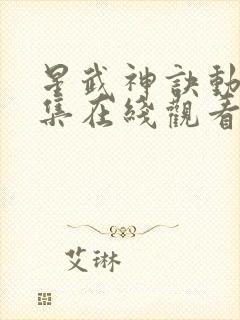 星武神訣動
集在綫觀看
艾琳